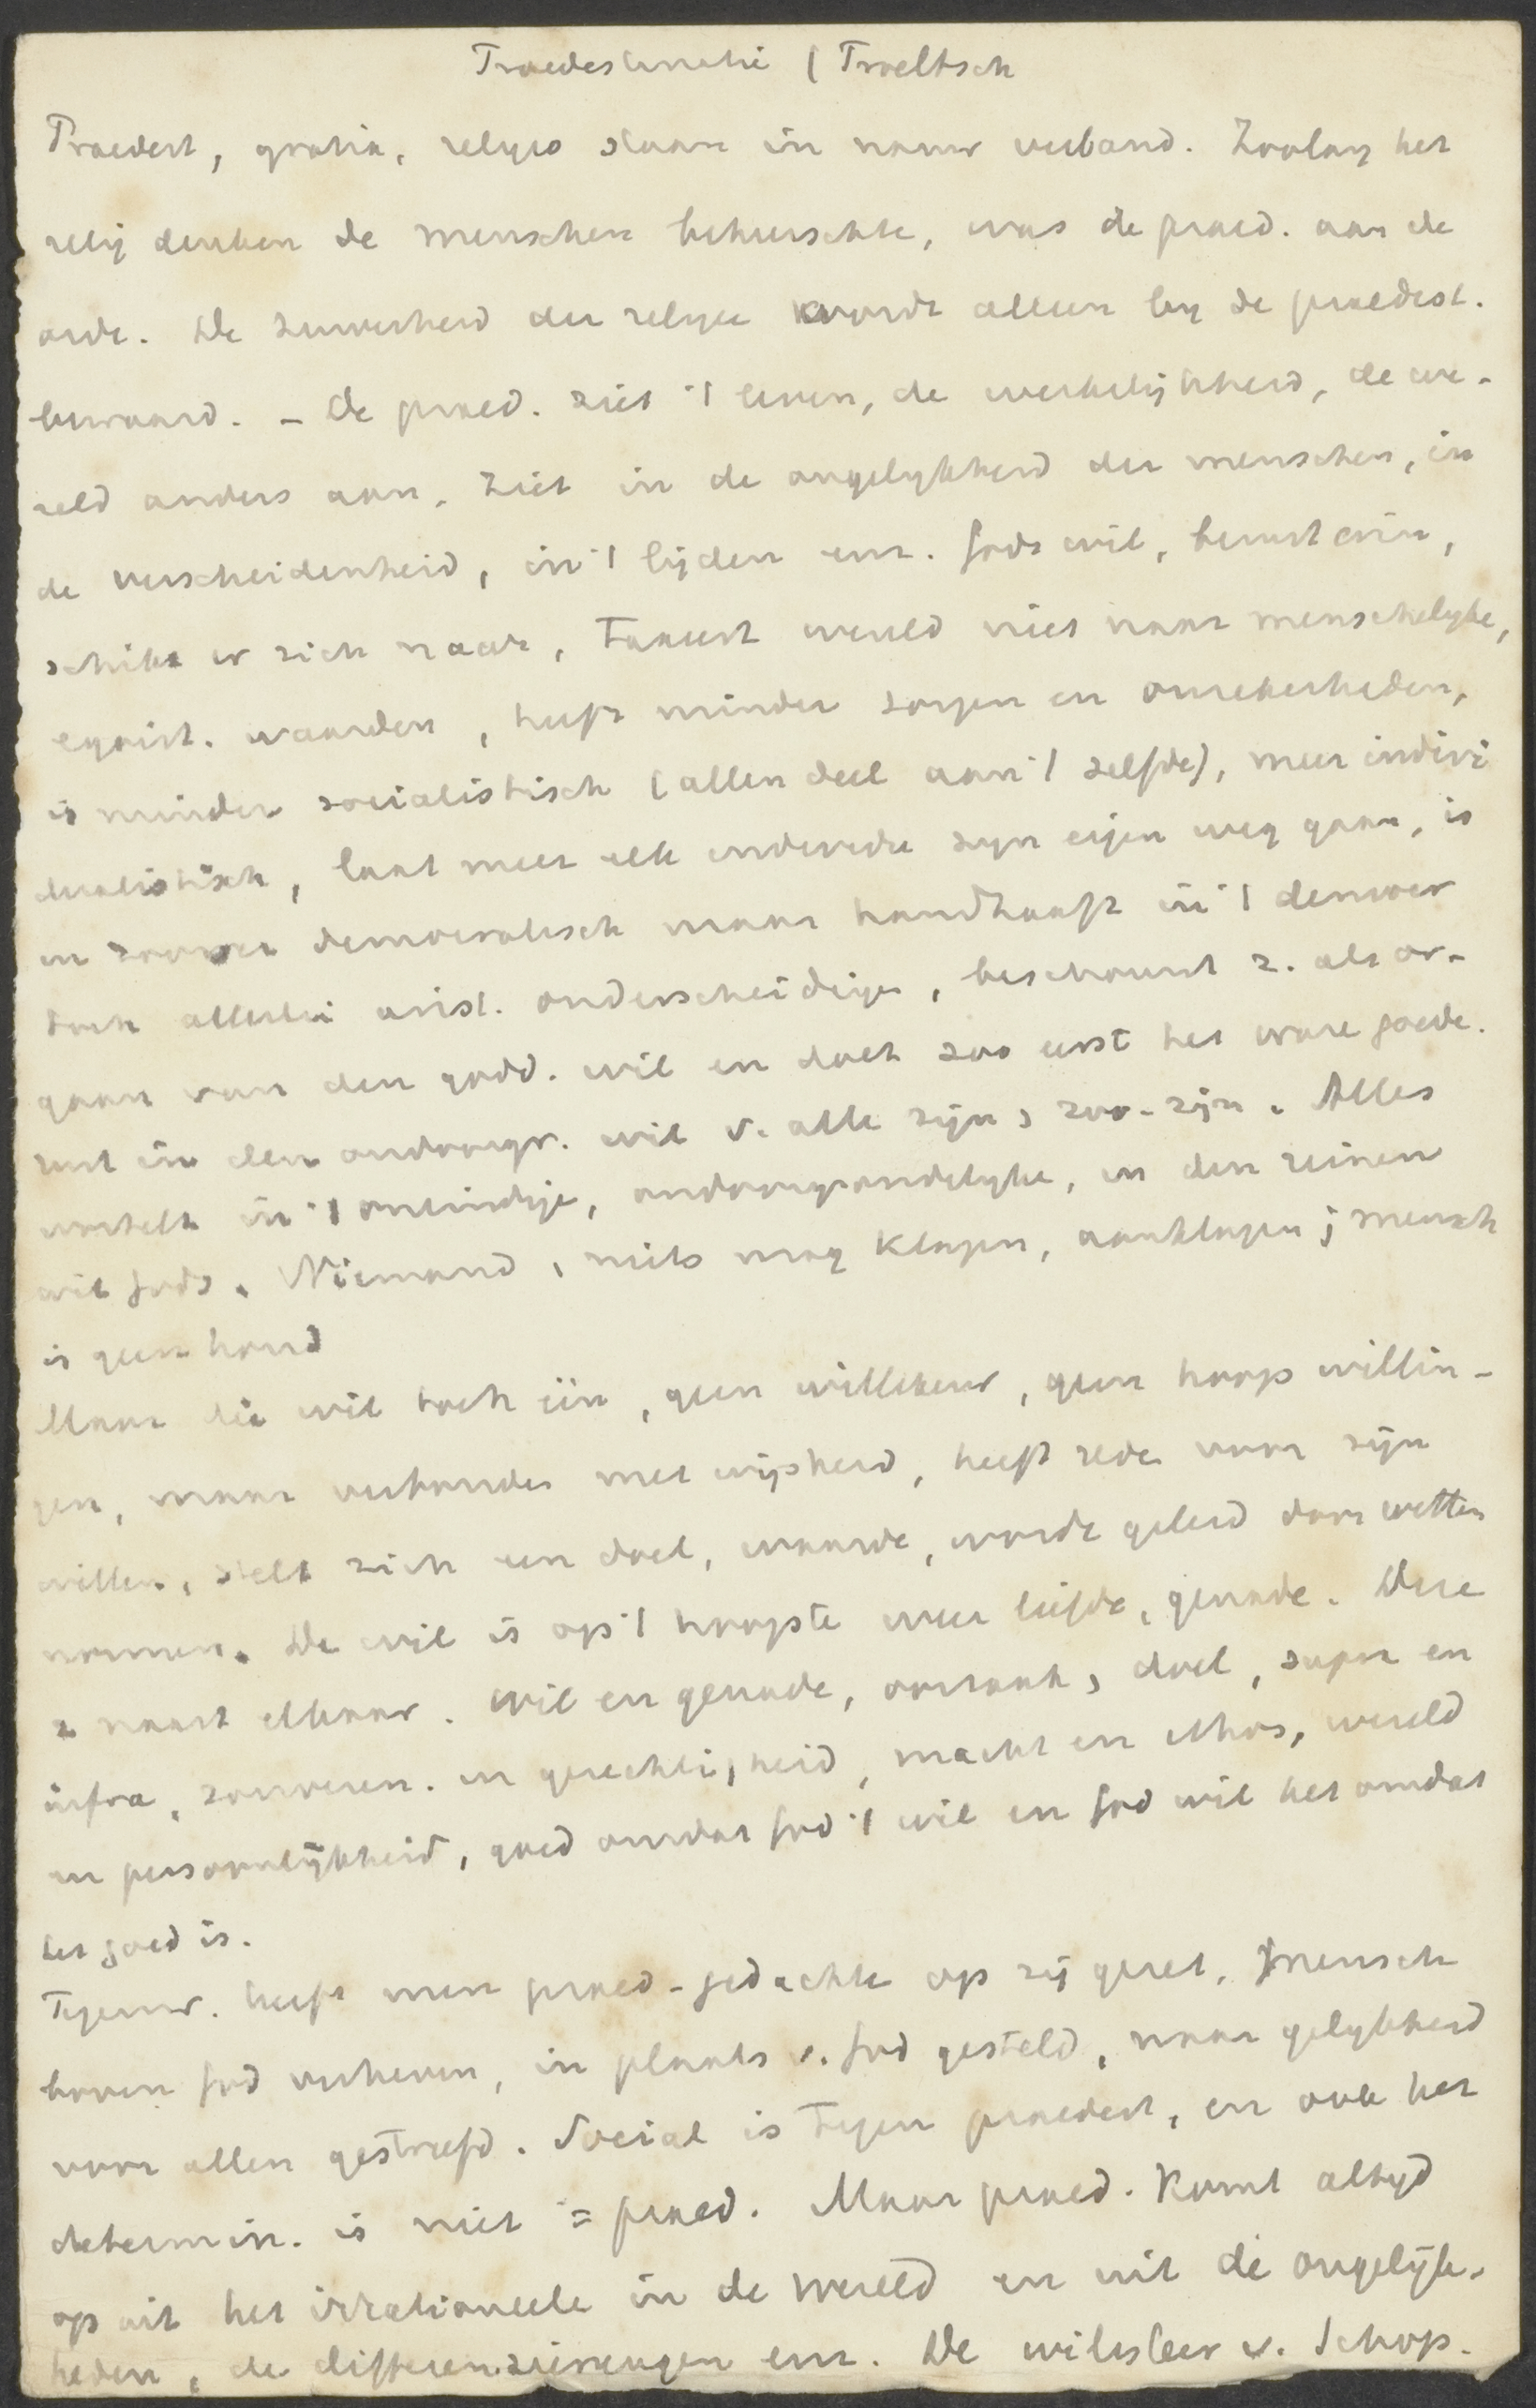 Praedestinatie (Troeltsch
Praedest, gratia, religio staan in nauw verband. Zoolang het
relig denken de menschen beheerschte, was de praed. aan de
orde. De zuiverheid der religie wordt alleen by de praedest.
bewaard. – De praed. ziet 't leven, de werkelijkheid, de we-
reld anders aan, ziet in de ongelykheid der menschen, in
de verscheidenheid, in 't lijden enz. Gods wil, berust erin,
schikt er zich naar, taxeert wereld niet naar menschelyke,
egoist. waarden, heeft minder zorgen en onzekerheden,
is minder socialistisch (allen deel aan 't zelfde), meer indivi
dualistisch, laat meer elk individu zyn eigen weg gaan, is
in zoover democratisch maar handhaaft in 't democr
toch allerlei arist. onderscheidige, beschouwt z. als or-
gaan van den godd. wil en doet zoo eerst het ware goede.
rust in den ondoorgr. wil v. alle zijn, zoo-zijn. Alles
wortelt in 't oneindige, ondoorgrondelyke, in den reinen
wil Gods. Niemand, niets mag klagen, aanklagen; mensch
is geen hond
Maar die wil toch één, geen willekeur, geen hoop willin-
gen, maar verbonden met wijsheid, heeft rede voor zijn
willen, stelt zich een doel, waarde, wordt geleid door wetten
normen. De wil is op 't hoogste weer liefde, genade. Deze
2 naast elkaar. Wil en genade, oorzaak, doel, supra en
infra, souverein. en gerechtigheid, macht en ethos, wereld
en persoonlijkheid, goed omdat God 't wil en God wil het omdat
het goed is.
Tegenw. heeft men praed-gedachte op zij gezet, mensch
boven God verheven, in plaats v. God gesteld, naar gelykheid
voor allen gestreefd. Sociaal is tegen praedest, en ook het
determin. is niet = praed. Maar praed. komt altyd
op uit het irrationeele in de wereld en uit de ongelijk-
heden, de differenzieerungen enz. De wilsleer v. Schop.